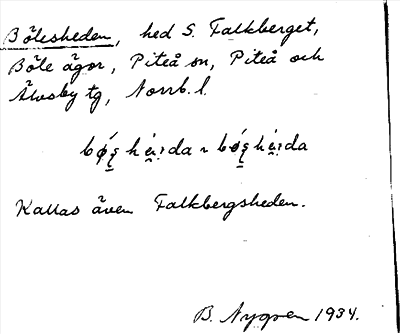 Bölesheden, hed S. Falkberget,
Böle ägor, Piteå sn, Piteå och
Älvsby tg, Norrb. l.
Kallas även Falkbergsheden.
B. Nygren 1934.